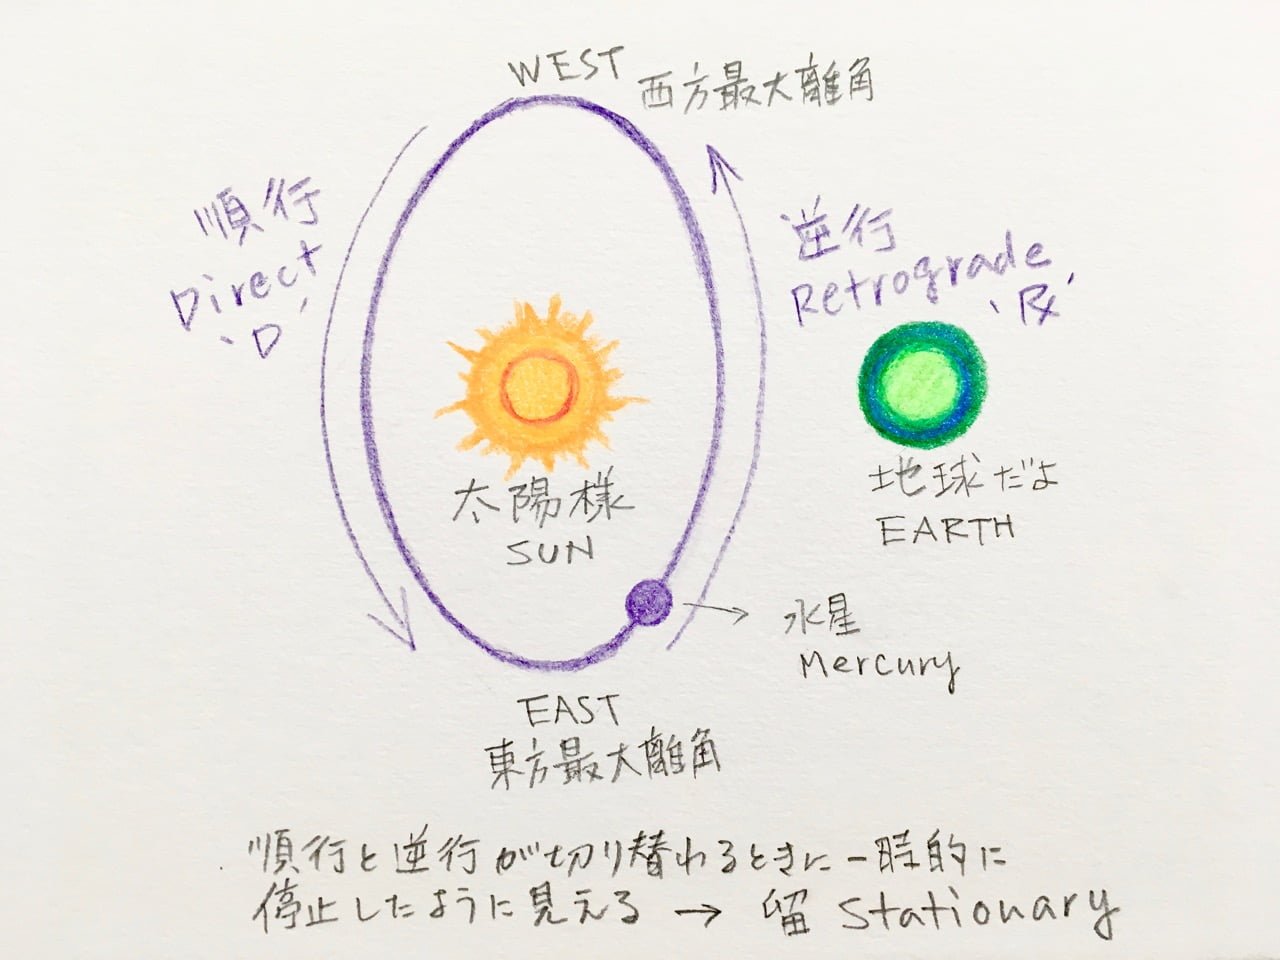 WEST
西方最大離角
順行
Direct
'D'
逆行
Retrograde
'℞'
太陽様
SUN
地球だよ
EARTH
水星
Mercury
EAST
東方最大離角
順行と逆行が切り替わるときに一時的に
停止したように見える → 留 Stationary